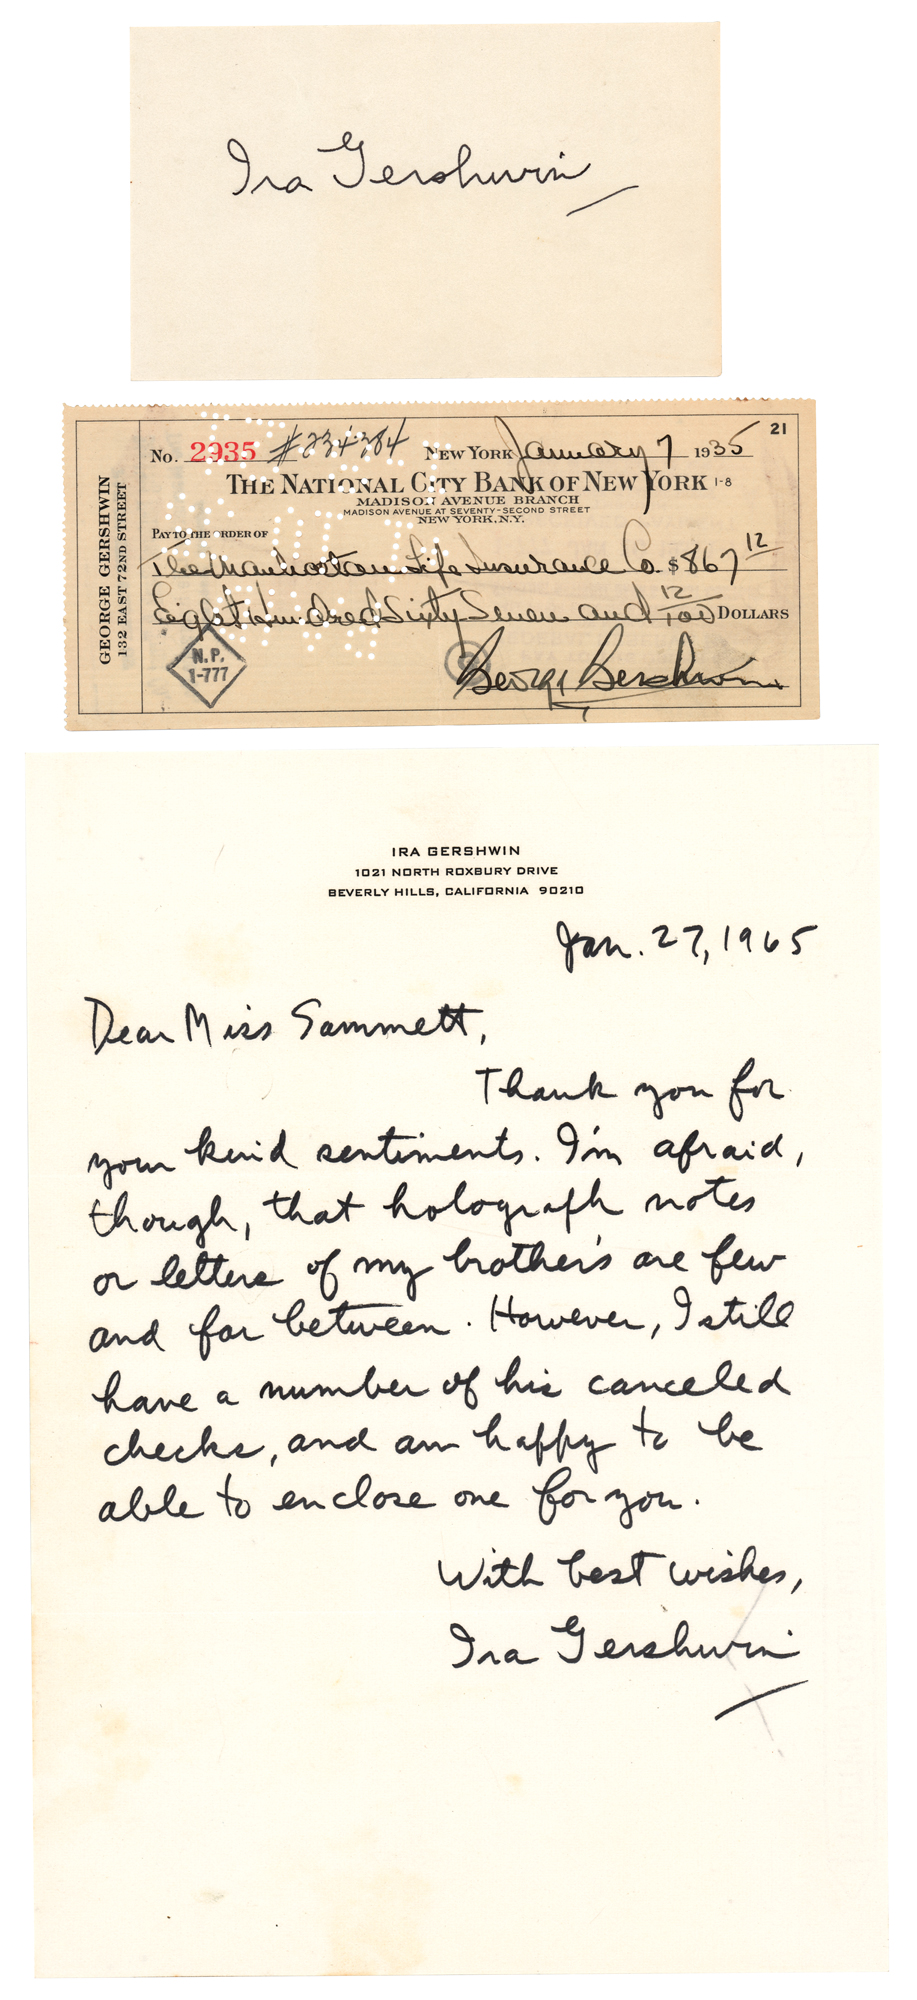 Ira Gershwin
21
No. 2935 #234384 New York January 7 1935
The National City Bank of New York 1-8
Madison Avenue Branch
Madison Avenue at Seventy-Second Street
New York, N.Y.
Pay to the order of
The Manhattan Life Insurance Co. $867 12
Eight Hundred Sixty Seven and 12/100 Dollars
George Gershwin
132 East 72nd Street
N.P.
1-777
George Gershwin
IRA GERSHWIN
1021 NORTH ROXBURY DRIVE
BEVERLY HILLS, CALIFORNIA 90210
Jan. 27, 1965
Dear Miss Sammett,
Thank you for
your kind sentiments. I'm afraid,
though, that holograph notes
or letters of my brother's are few
and far between. However, I still
have a number of his canceled
checks, and am happy to be
able to enclose one for you.
With best wishes,
Ira Gershwin